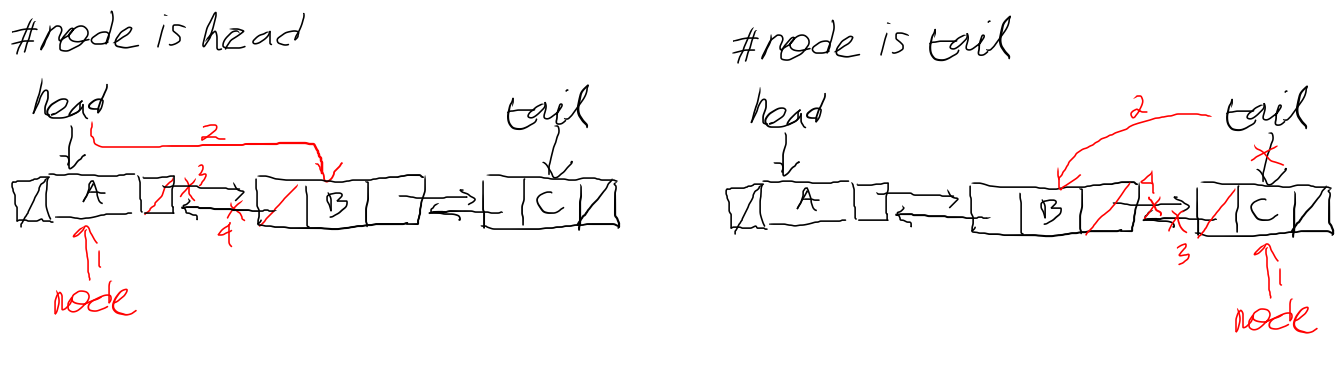 #node is head
head
tail
2
A
3
B
C
4
1
node
#node is tail
head
tail
2
A
B
4
C
3
1
node